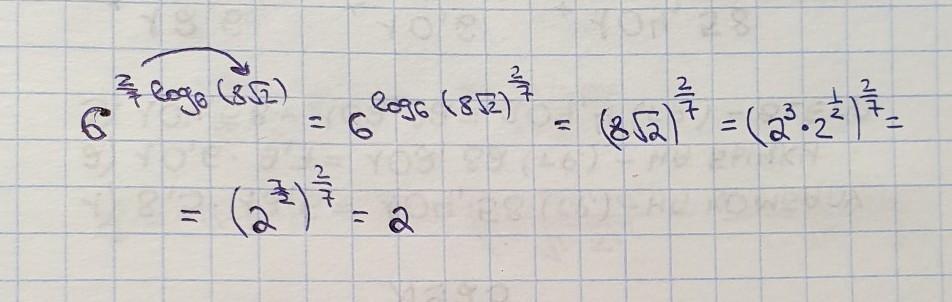 6^{2/7 log₆(8√2)} = 6^{log₆(8√2)^{2/7}} = (8√2)^{2/7} = (2³·2^{1/2})^{2/7} =
= (2^{7/2})^{2/7} = 2